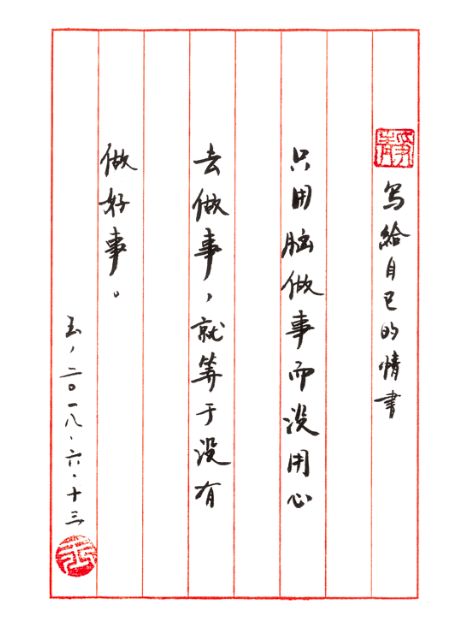 静
写给自己的情书
只用脑做事而没用心
去做事，就等于没有
做好事。
二〇一八、六、十三